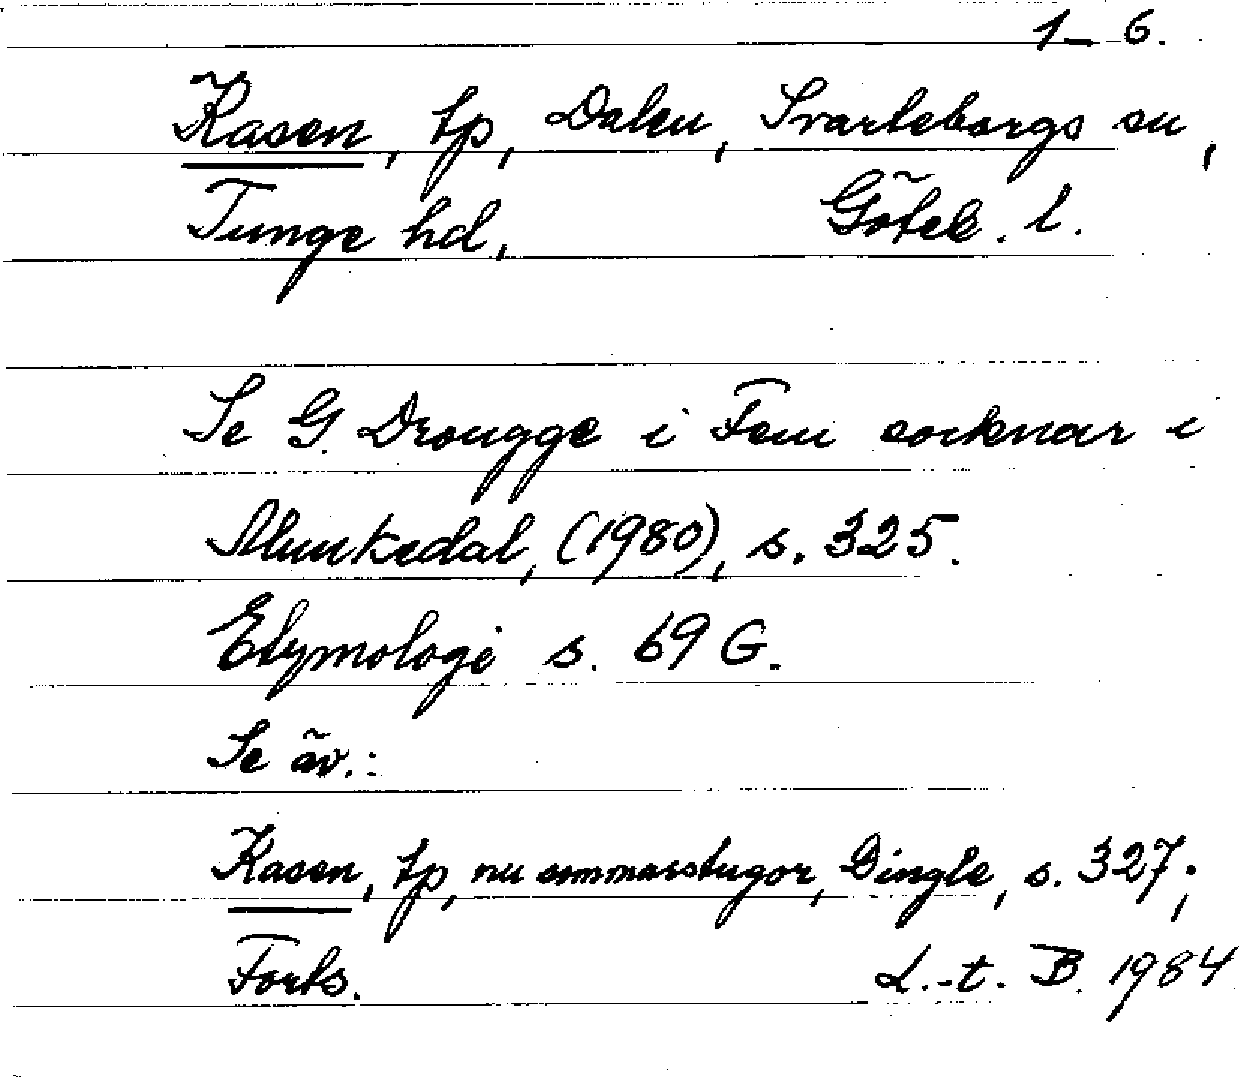 1-6.
Kasen, tp, Dalen, Svarteborgs sn,
Tunge hd, Göteb. l.
Se G. Drougge i Fem socknar i
Munkedal, (1980), s. 325.
Etymologi s. 69 G.
Se äv.:
Kasen, tp, nu sommarstugor, Dingle, s. 327;
Forts. L.-t. B. 1984